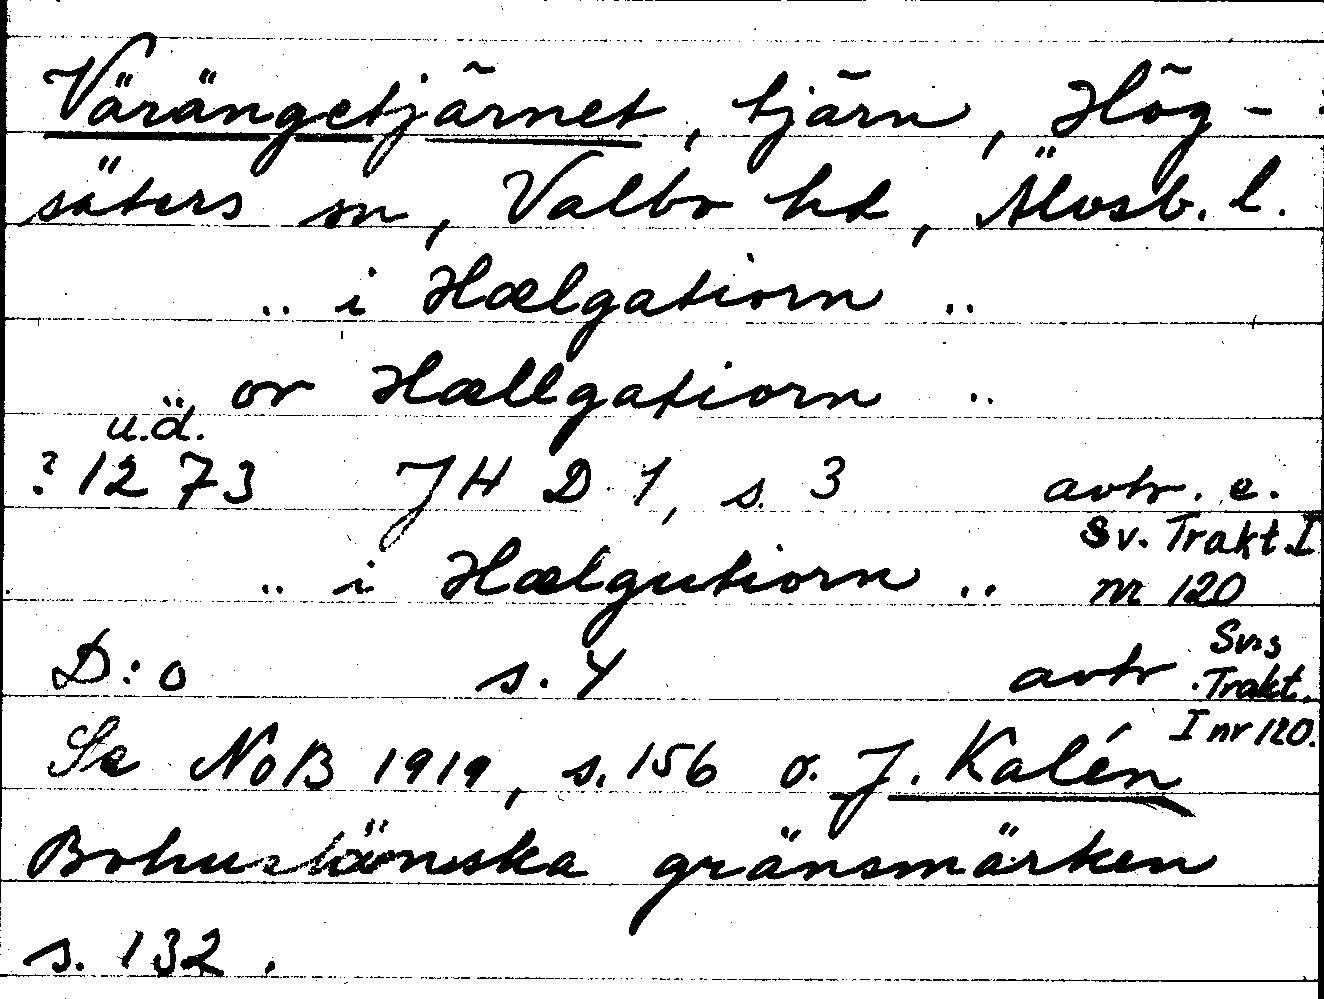 Värängetjärnet, tjärn, Hög-
säters sn, Valbo hd, Älvsb. l.
.. i Hælgatiorn ..
or Hællgatiorn ..
u.d.
? 1273 JH D 1, s. 3 avtr. e.
Sv. Trakt. I
.. i Hælgutiorn .. nr 120
D:o s. 4 avtr Sv:s
Trakt.
I nr 120.
Se NoB 1919, s. 156 o. J. Kalén
Bohuslänska gränsmärken
s. 132.